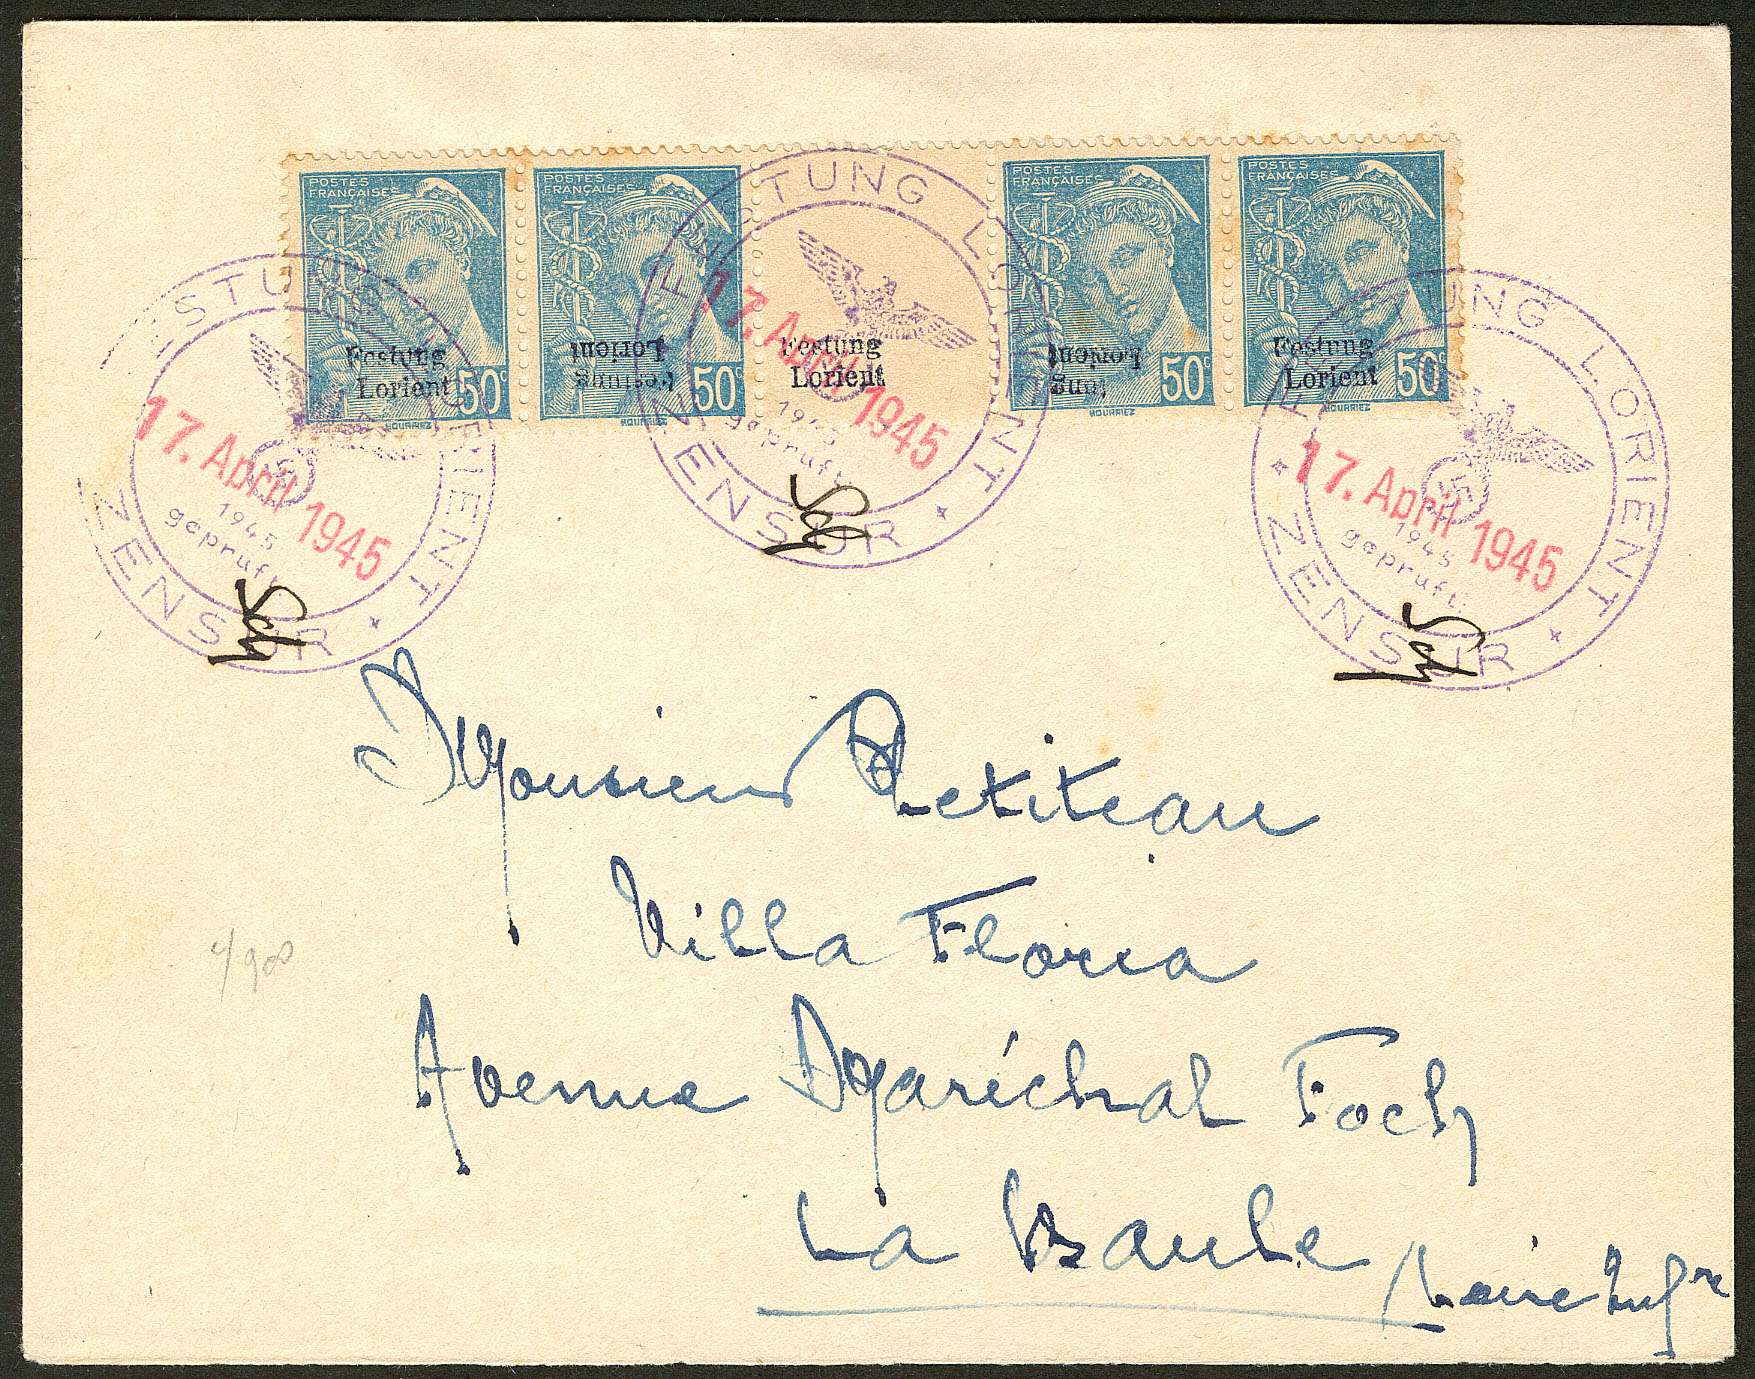 POSTES
FRANÇAISES
Festung
Lorient
50c
HOURRIEZ
POSTES
FRANÇAISES
Festung
Lorient
50c
HOURRIEZ
Festung
Lorient
POSTES
FRANÇAISES
Lorient
tung
50c
HOURRIEZ
POSTES
FRANÇAISES
Festung
Lorient
50c
HOURRIEZ
FESTUNG LORIENT
17. April 1945
1945
geprüft
ZENSUR
FESTUNG LORIENT
17. April 1945
1945
geprüft
ZENSUR
FESTUNG LORIENT
17. April 1945
1945
geprüft
ZENSUR
Monsieur Petiteau
Villa Floria
Avenue Maréchal Foch
La Baule
Loire Infre